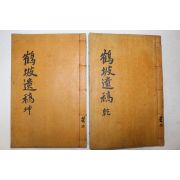 鶴坡遺稿 乾
鶴坡遺稿 坤